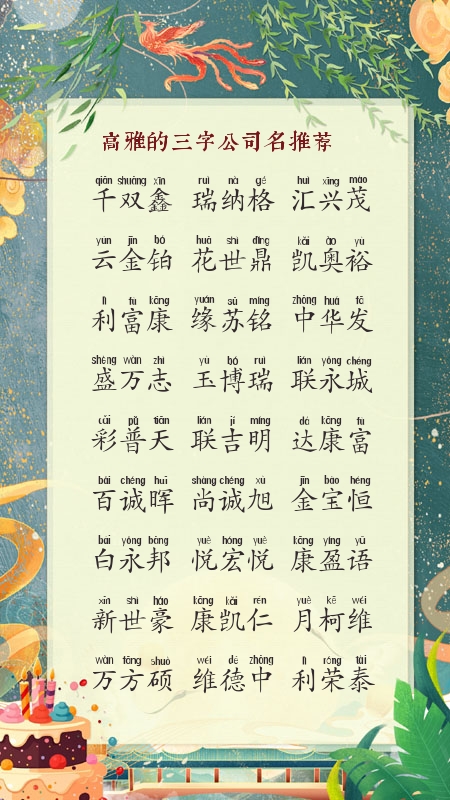 高雅的三字公司名推荐
qiān shuāng xīn ruì nà gé huì xīng mào
千双鑫 瑞纳格 汇兴茂
yún jīn bó huā shì dǐng kǎi ào yù
云金铂 花世鼎 凯奥裕
lì fù kāng yuán sū míng zhōng huá fā
利富康 缘苏铭 中华发
shèng wàn zhì yù bó ruì lián yǒng chéng
盛万志 玉博瑞 联永城
cǎi pǔ tiān lián jí míng dá kāng fù
彩普天 联吉明 达康富
bǎi chéng huī shàng chéng xù jīn bǎo héng
百诚晖 尚诚旭 金宝恒
bái yǒng bāng yuè hóng yuè kāng yíng yǔ
白永邦 悦宏悦 康盈语
xīn shì háo kāng kǎi rén yuè kē wéi
新世豪 康凯仁 月柯维
wàn fāng shuò wéi dé zhōng lì róng tài
万方硕 维德中 利荣泰